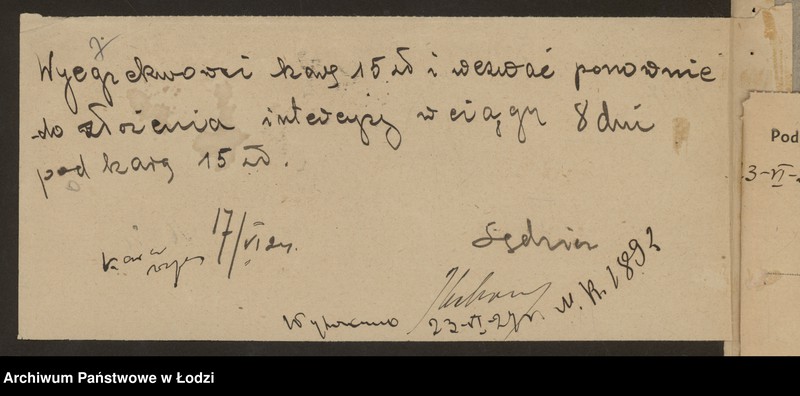 Wyegzekwować karę 15 zł i wezwać ponownie
do złożenia intercyzy w ciągu 8 dni
pod karą 15 zł.
17/VI 27.
Sędzia
Wykonano 23-VI-27 r. N. R. 1892
Pod
3-VI-
Archiwum Państwowe w Łodzi